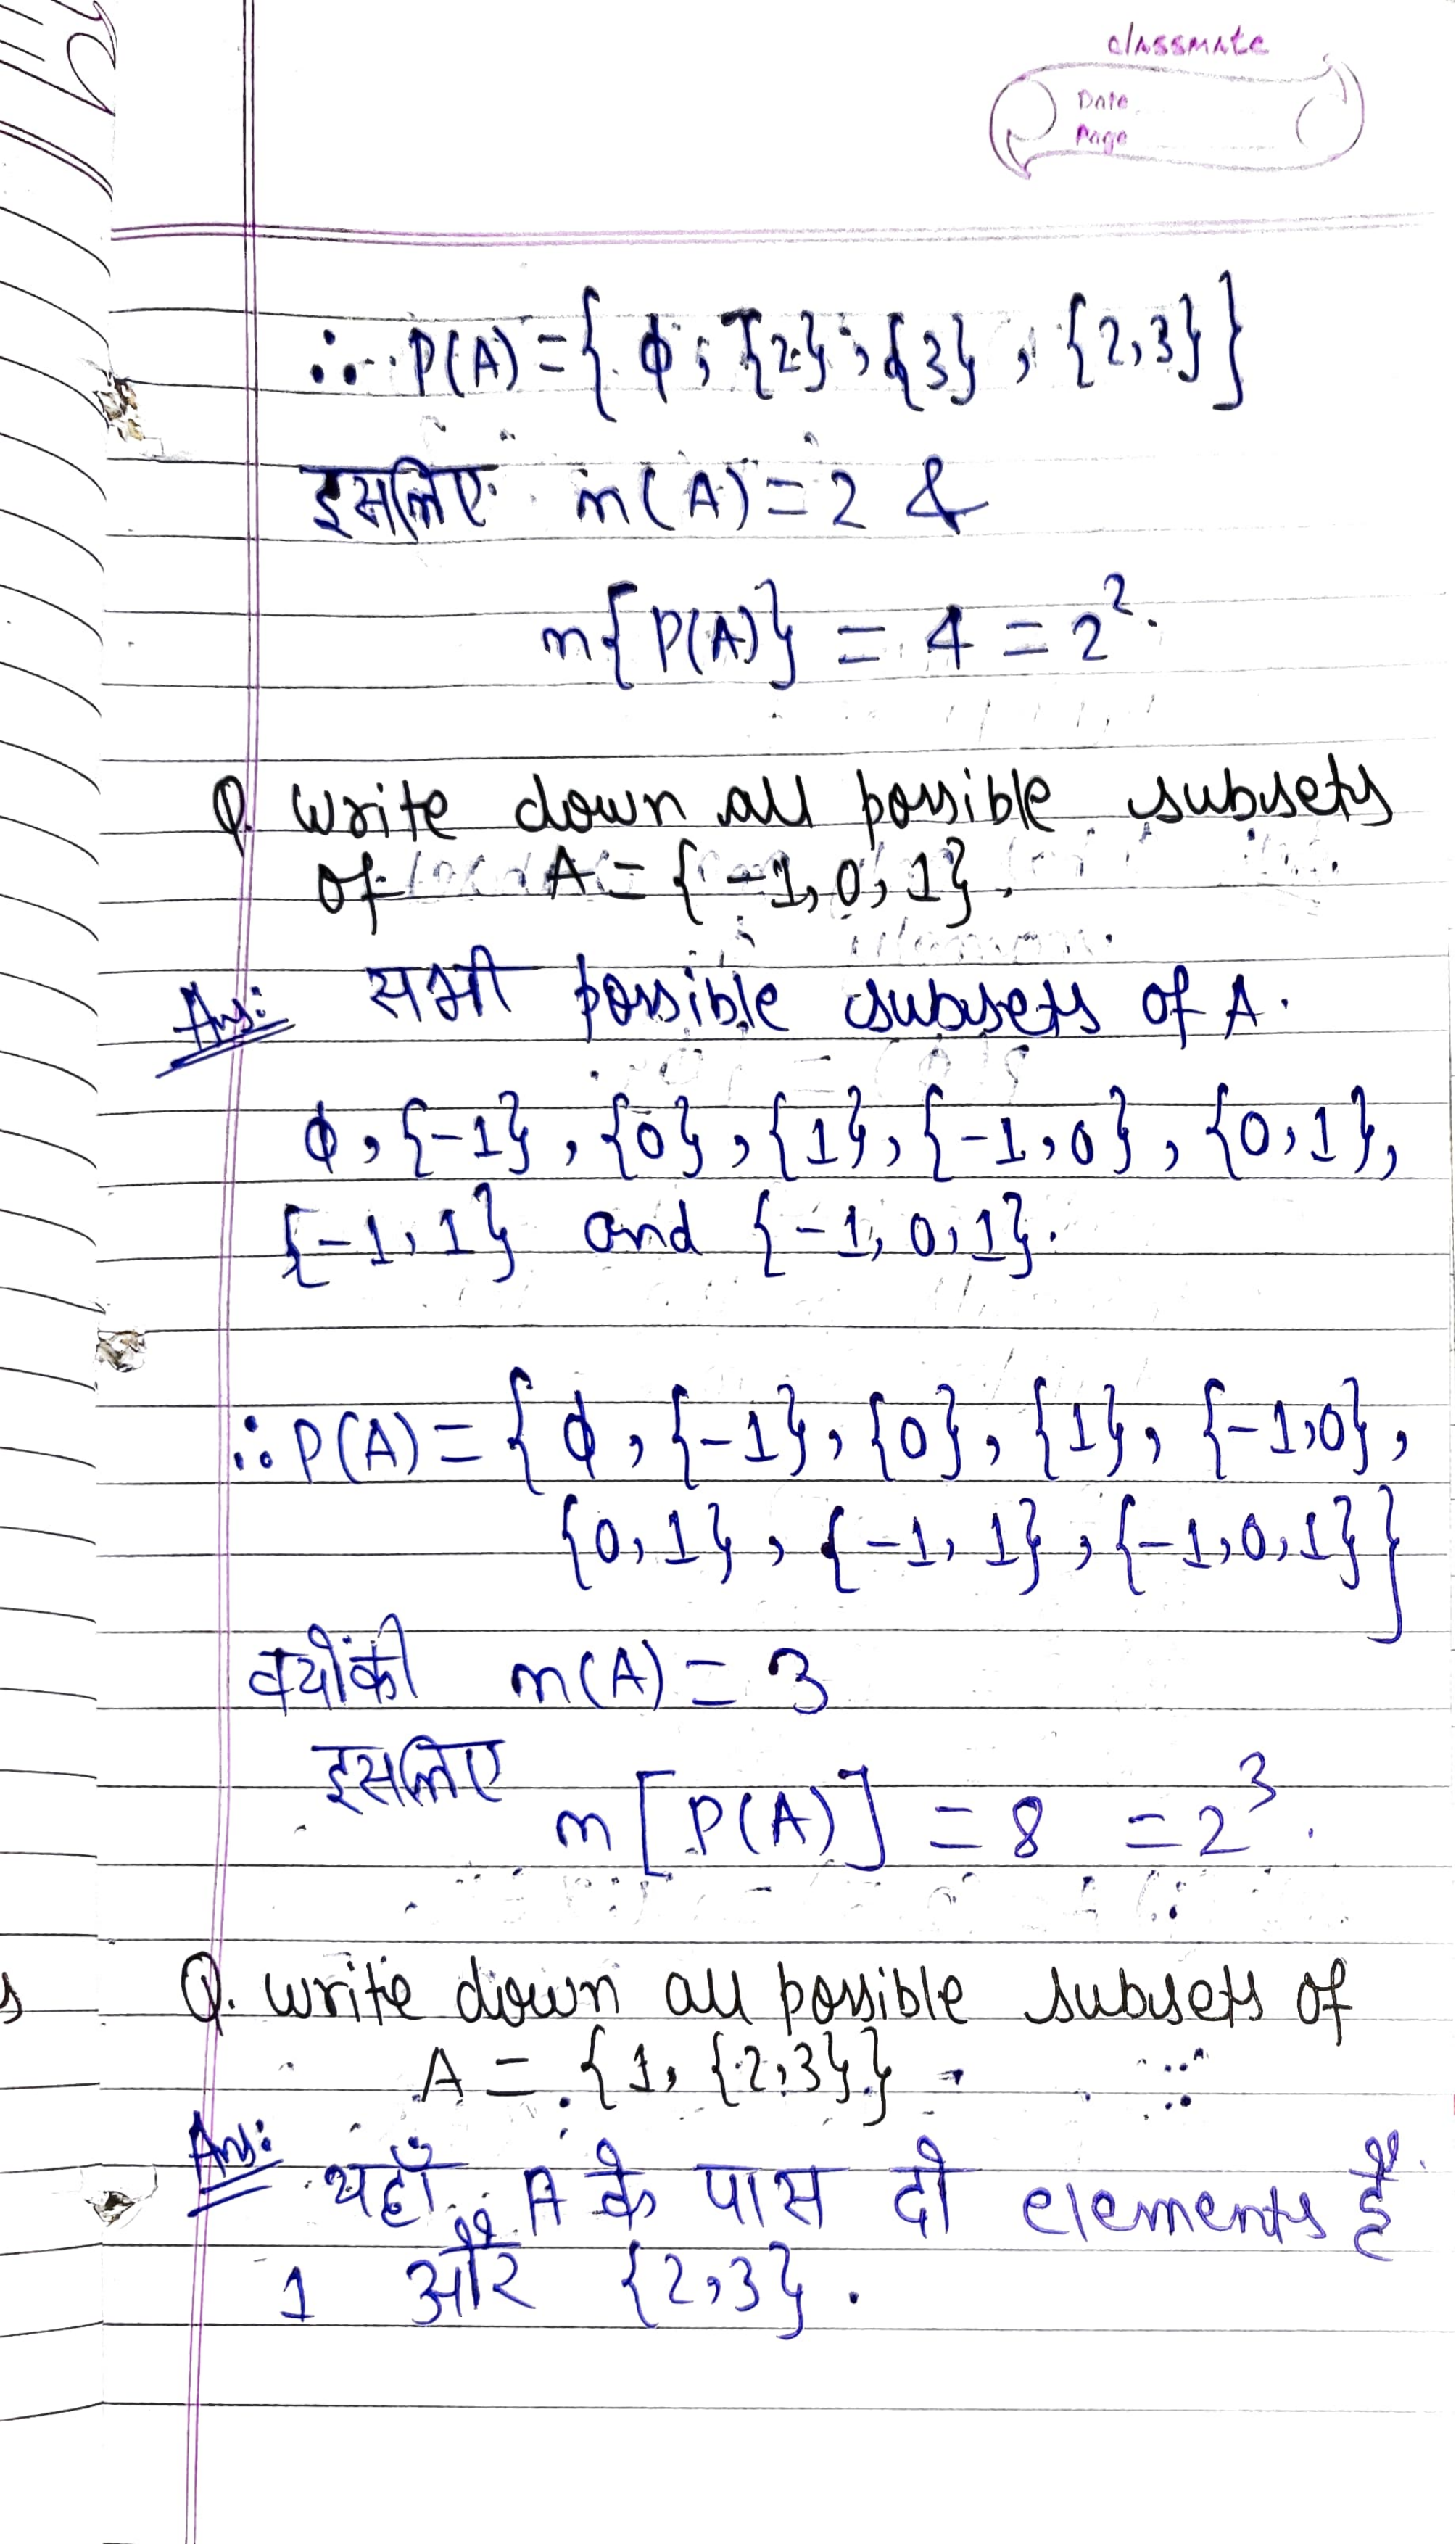 classmate
Date
Page
∴ P(A) = { ϕ, {2}, {3}, {2,3} }
इसलिए n(A) = 2 &
n{P(A)} = 4 = 2².
Q. Write down all possible subsets
of A = {-1, 0, 1}.
Ans: सभी possible subsets of A.
ϕ, {-1}, {0}, {1}, {-1,0}, {0,1},
{-1,1} and {-1, 0, 1}.
∴ P(A) = { ϕ, {-1}, {0}, {1}, {-1,0},
{0,1}, {-1, 1}, {-1,0,1} }
क्योंकी n(A) = 3
इसलिए
n[P(A)] = 8 = 2³.
Q. write down all possible subsets of
A = {1, {2,3}}
Ans: यहाँ A के पास दो elements हैं
1 और {2,3}.